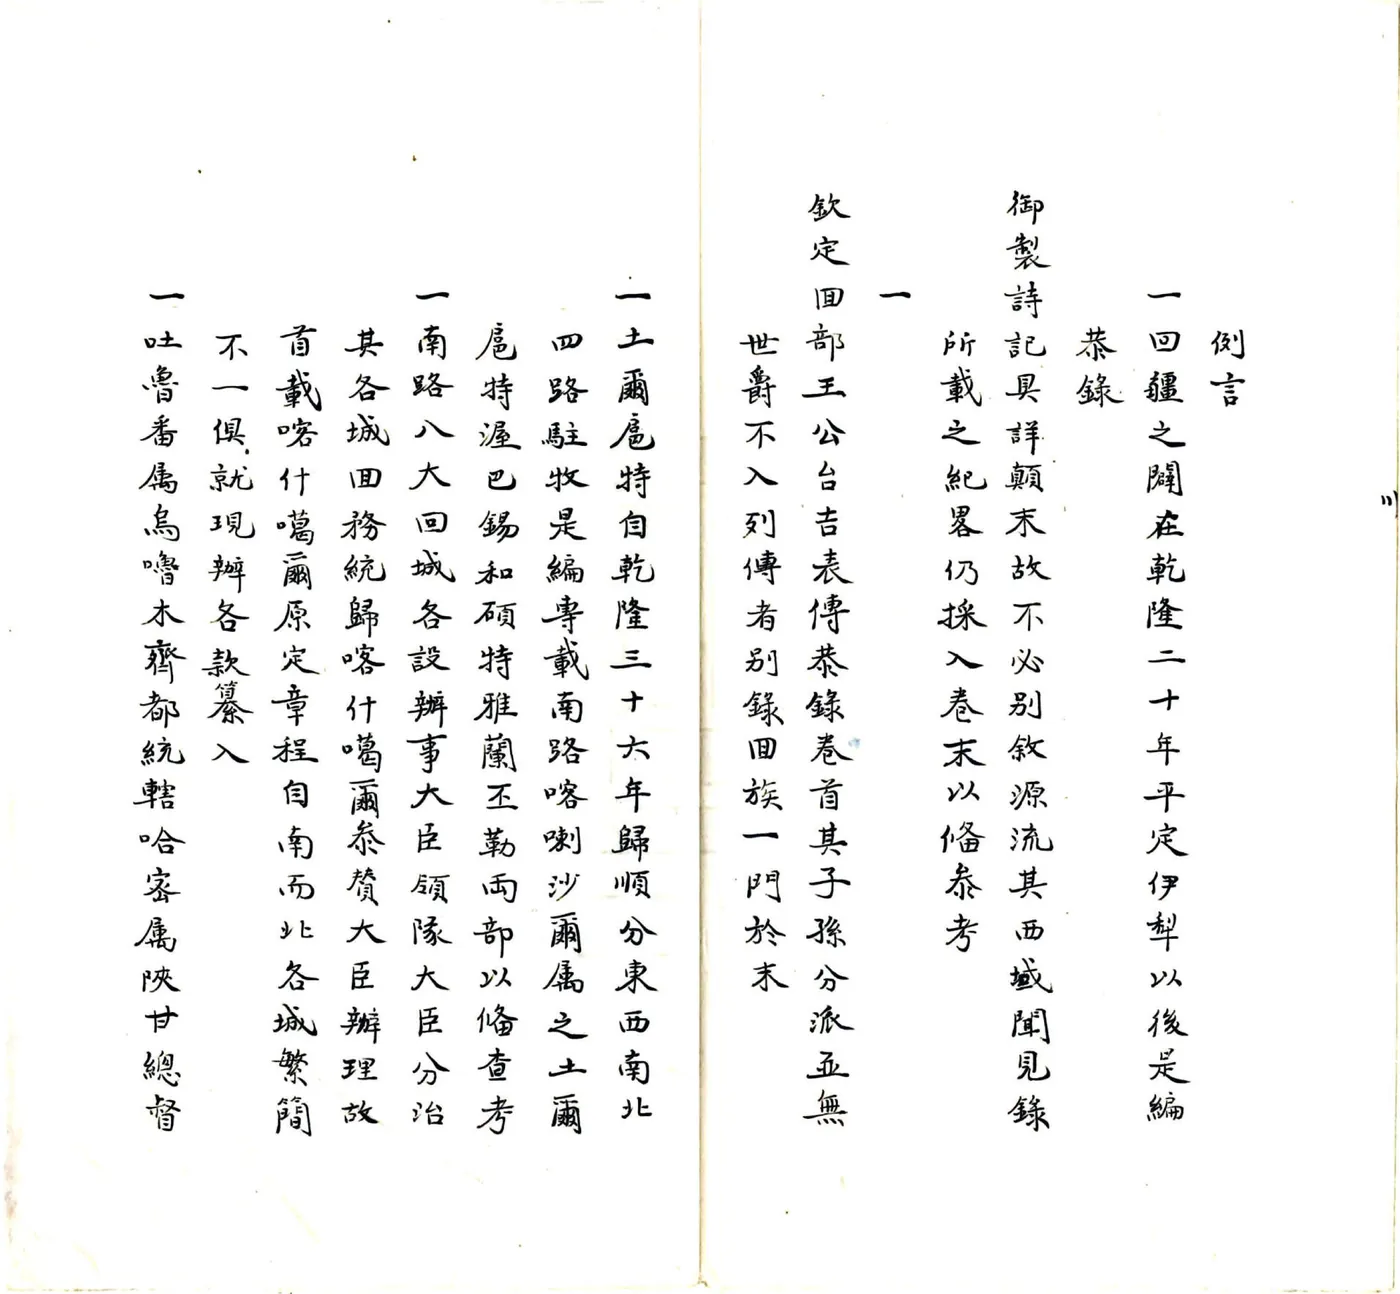 例言
一回疆之闢在乾隆二十年平定伊犁以後是編
恭錄
御製詩記具詳顛末故不必別敘源流其西域聞見錄
所載之紀畧仍採入卷末以偹叅考
一
欽定回部王公台吉表傳恭錄卷首其子孫分派並無
世爵不入列傳者別錄回族一門於末
一土爾扈特自乾隆三十六年歸順分東西南北
四路駐牧是編專載南路喀喇沙爾属之土爾
扈特渥巴錫和碩特雅蘭丕勒両部以偹查考
一南路八大回城各設辦事大臣領隊大臣分治
其各城回務統歸喀什噶爾叅贊大臣辦理故
首載喀什噶爾原定章程自南而北各城繁簡
不一俱就現辦各款纂入
一吐魯番属烏嚕木齊都統轄哈密属陝甘總督